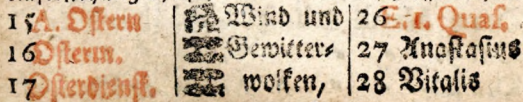 15 A. Ostern Wind und 26 Quas.
16 Osterm. Gewitter= 27 Anastasius
17 Osterdienst. wolken, 28 Vitalis